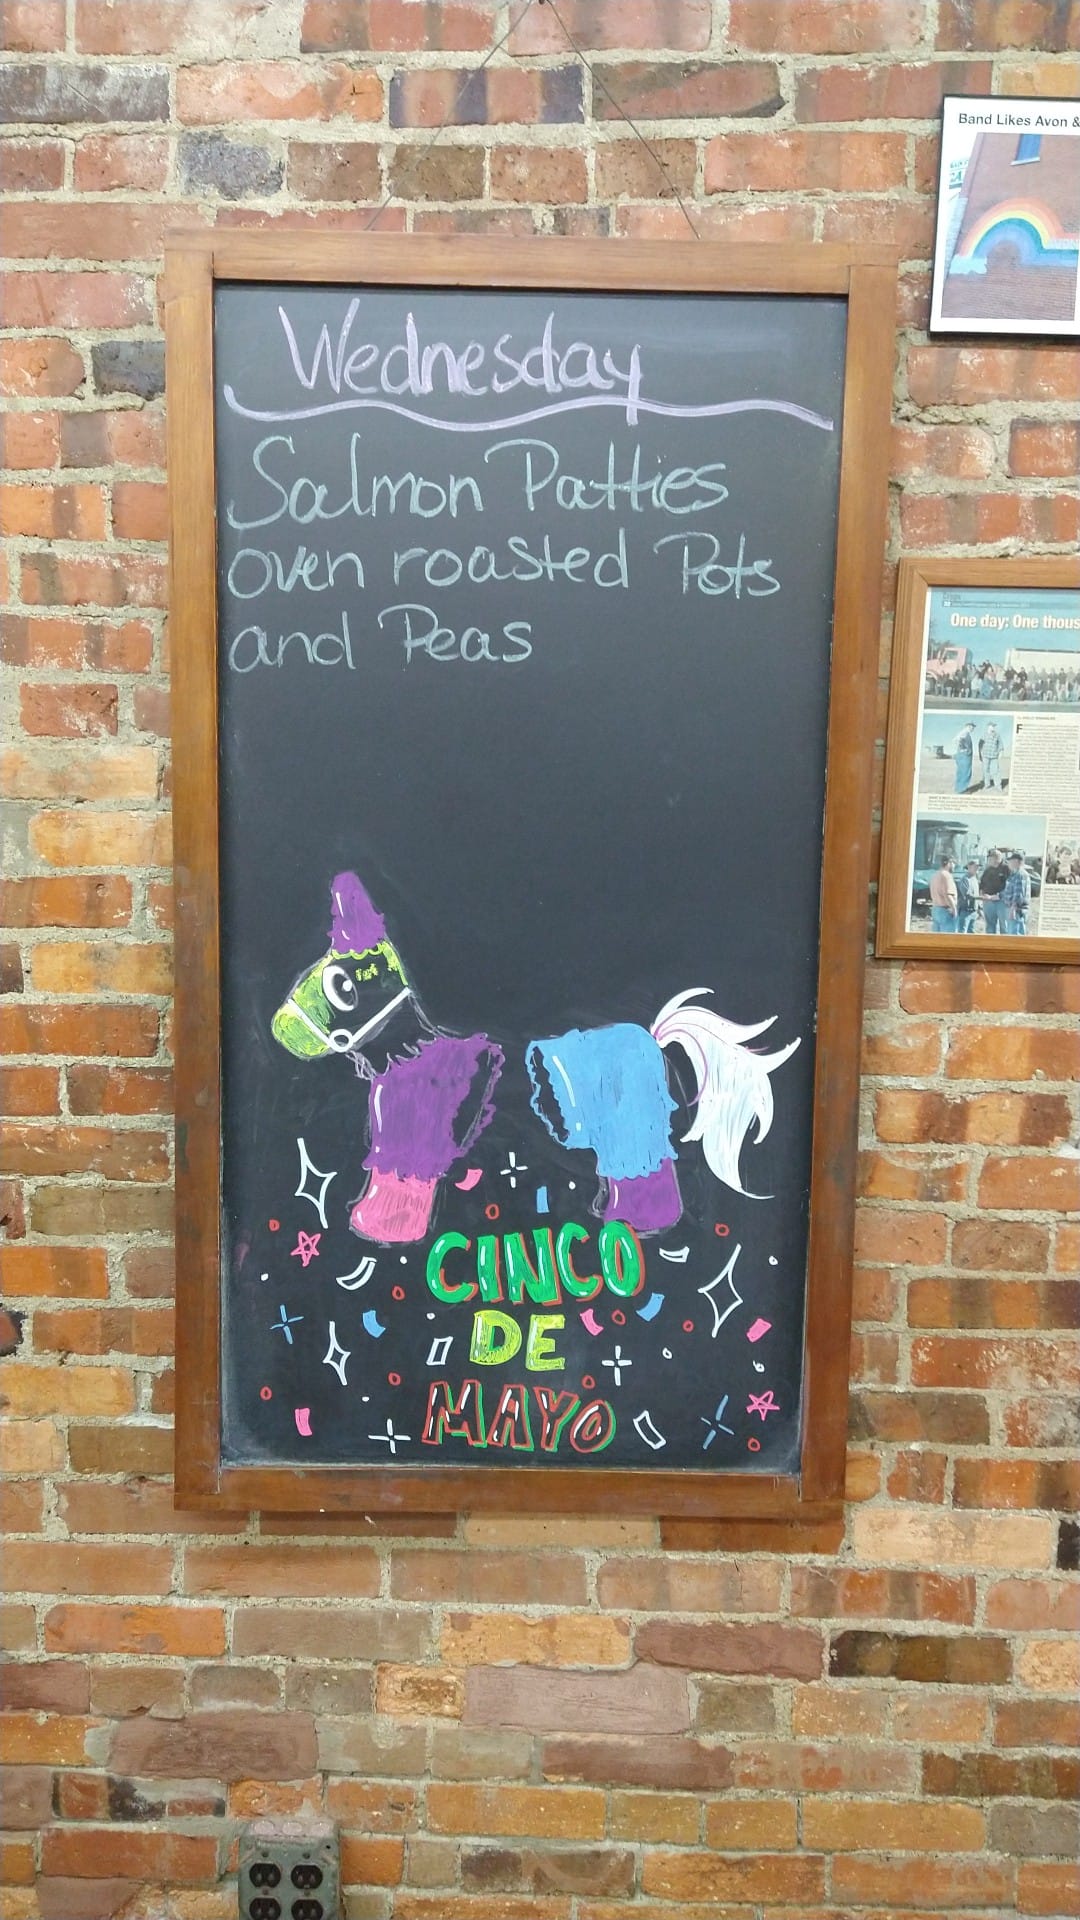 Band Likes Avon &
Wednesday
Salmon Patties
oven roasted Pots
and Peas
One day: One thous
CINCO
DE
MAYO